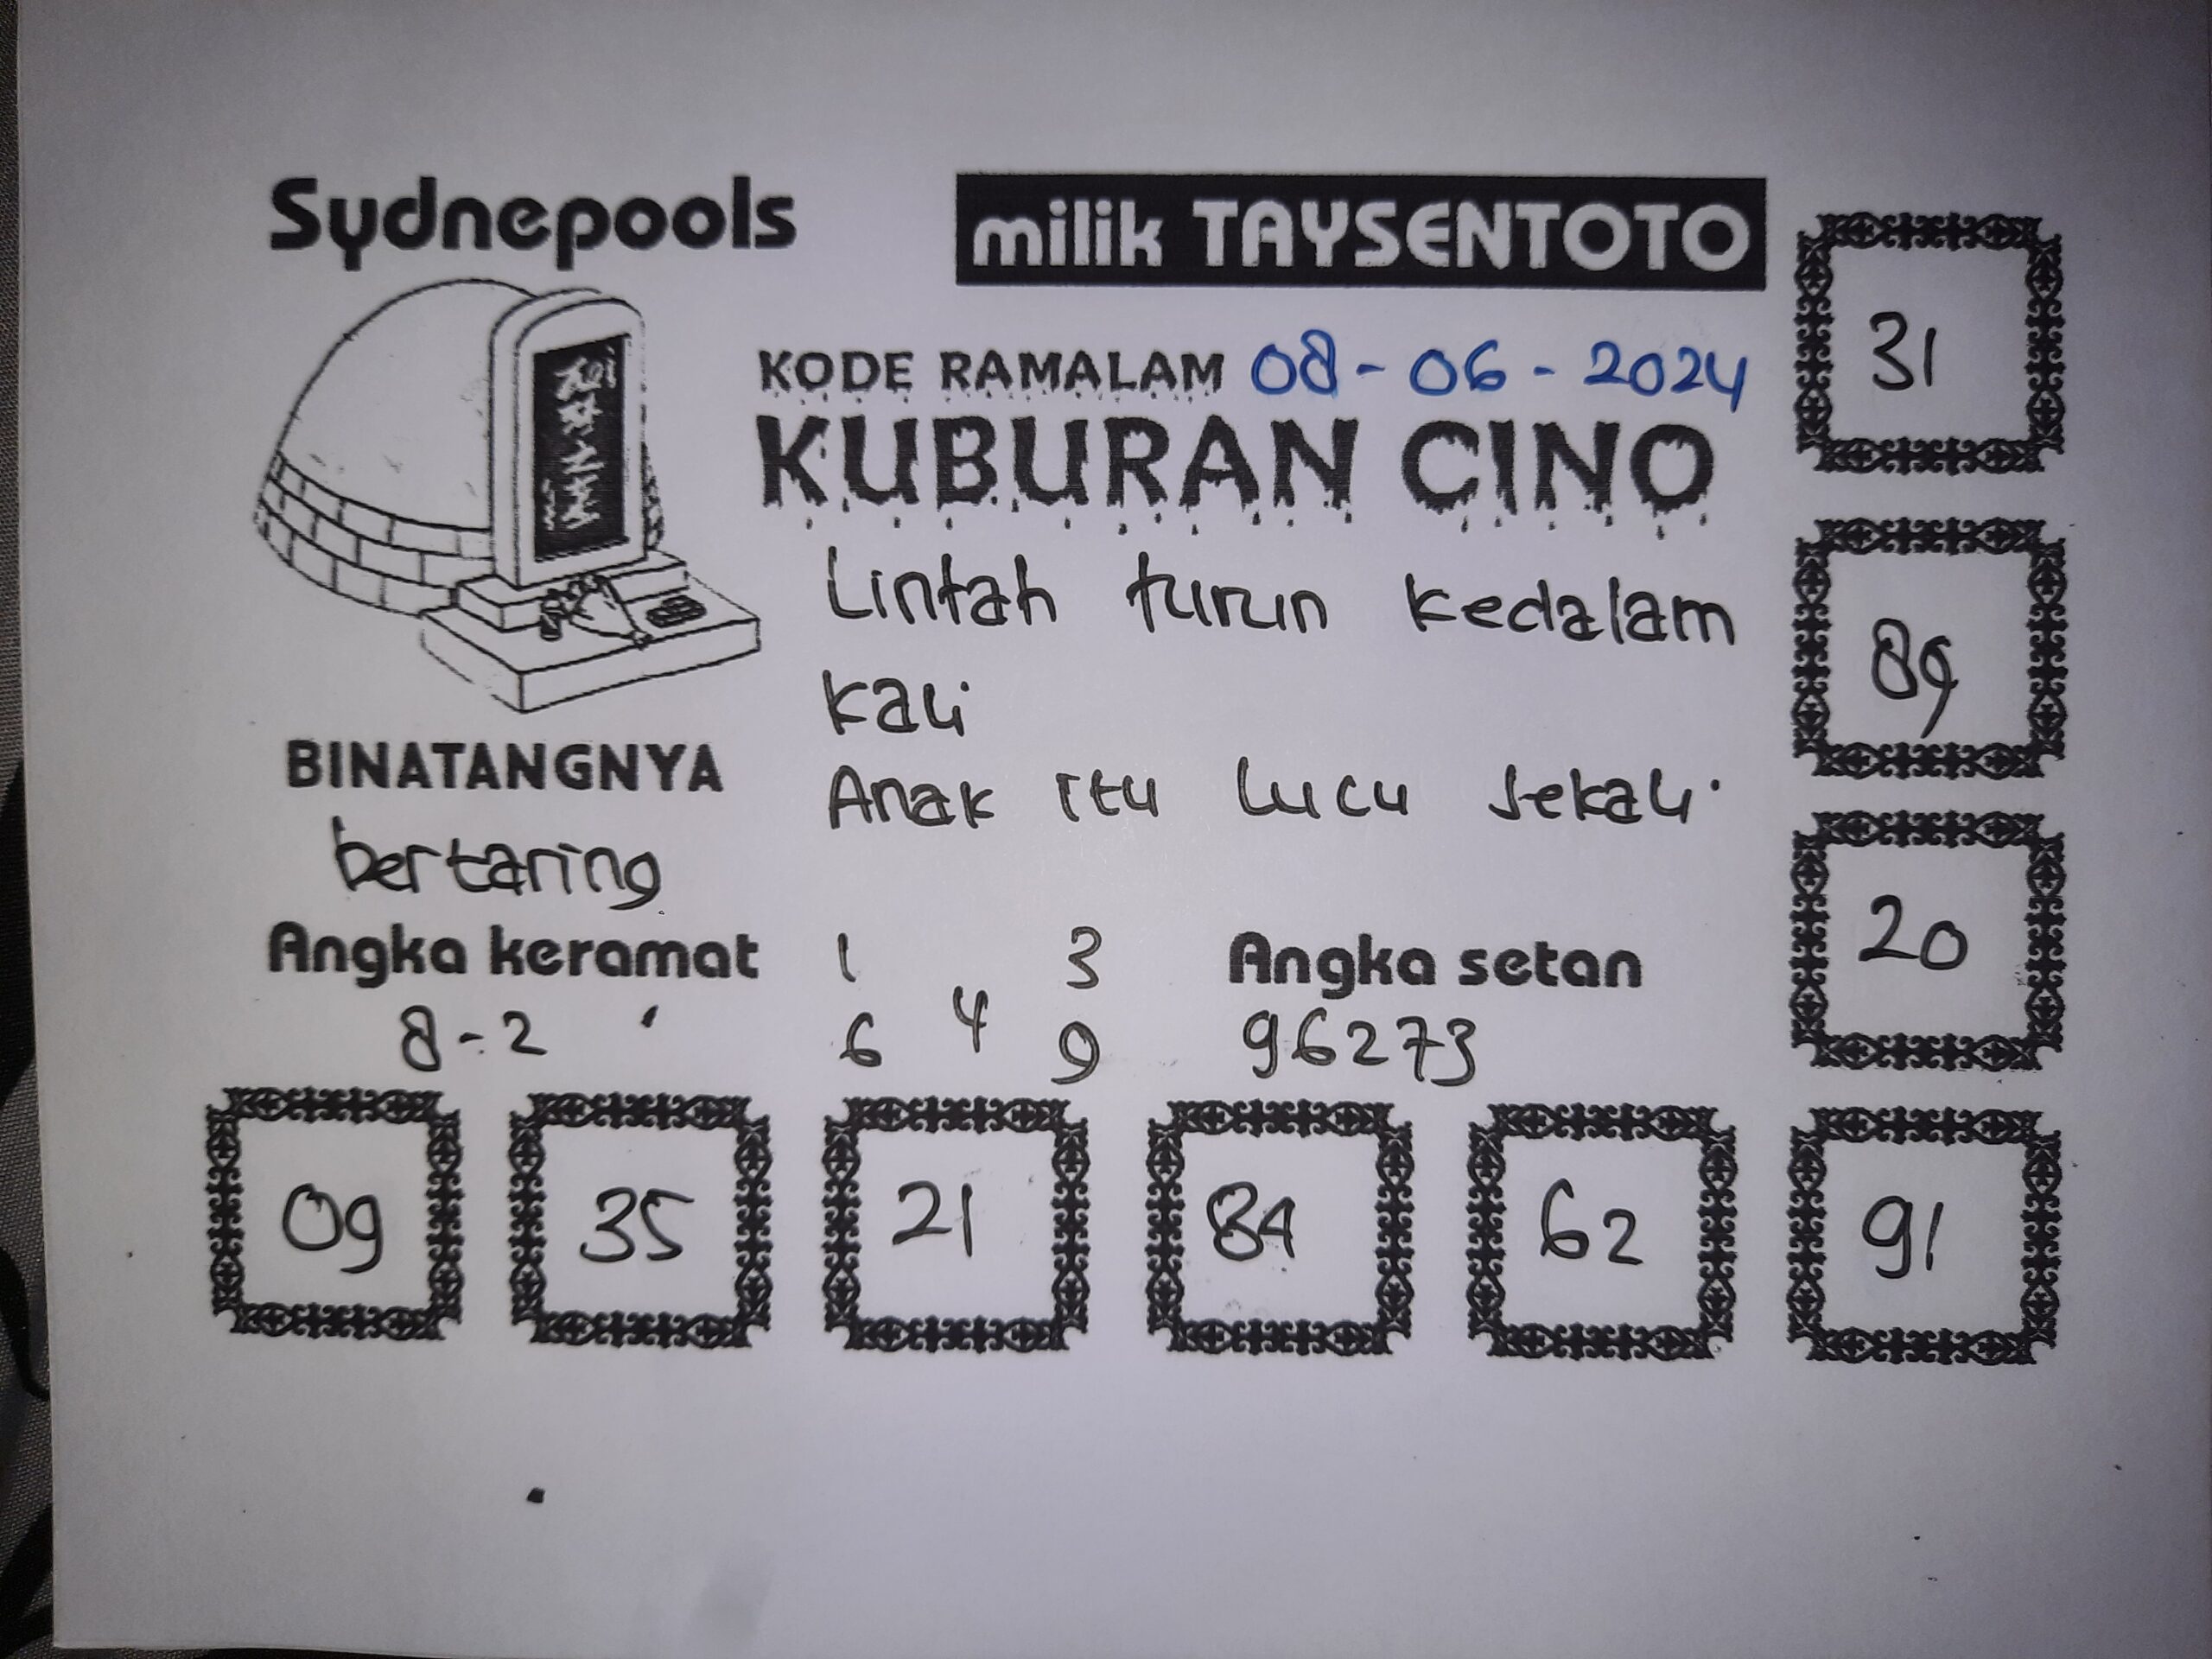 Sydnepools
milik TAYSENTOTO
KODE RAMALAM 08-06-2024
KUBURAN CINO
Lintah turun kedalam
kali
Anak itu lucu sekali
BINATANGNYA
bertaring
Angka keramat
8-2
1 3
4
6 9
Angka setan
96273
31
89
20
09 35 21 84 62 91